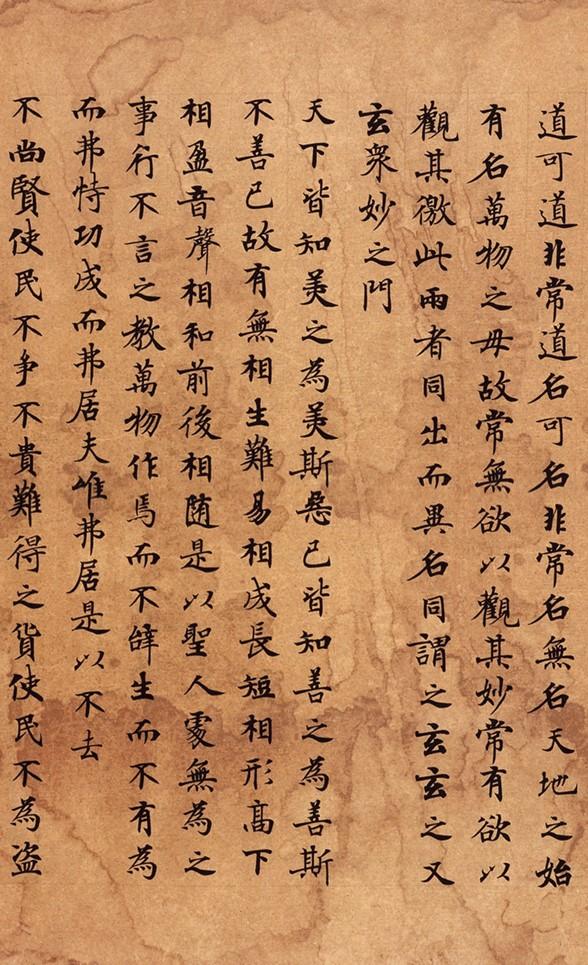 道可道非常道名可名非常名無名天地之始
有名萬物之母故常無欲以觀其妙常有欲以
觀其徼此兩者同出而異名同謂之玄玄之又
玄衆妙之門
天下皆知美之為美斯惡已皆知善之為善斯
不善已故有無相生難易相成長短相形髙下
相盈音聲相和前後相随是以聖人處無為之
事行不言之教萬物作焉而不辭生而不有為
而弗恃功成而弗居夫唯弗居是以不去
不尚賢使民不争不貴難得之貨使民不為盗